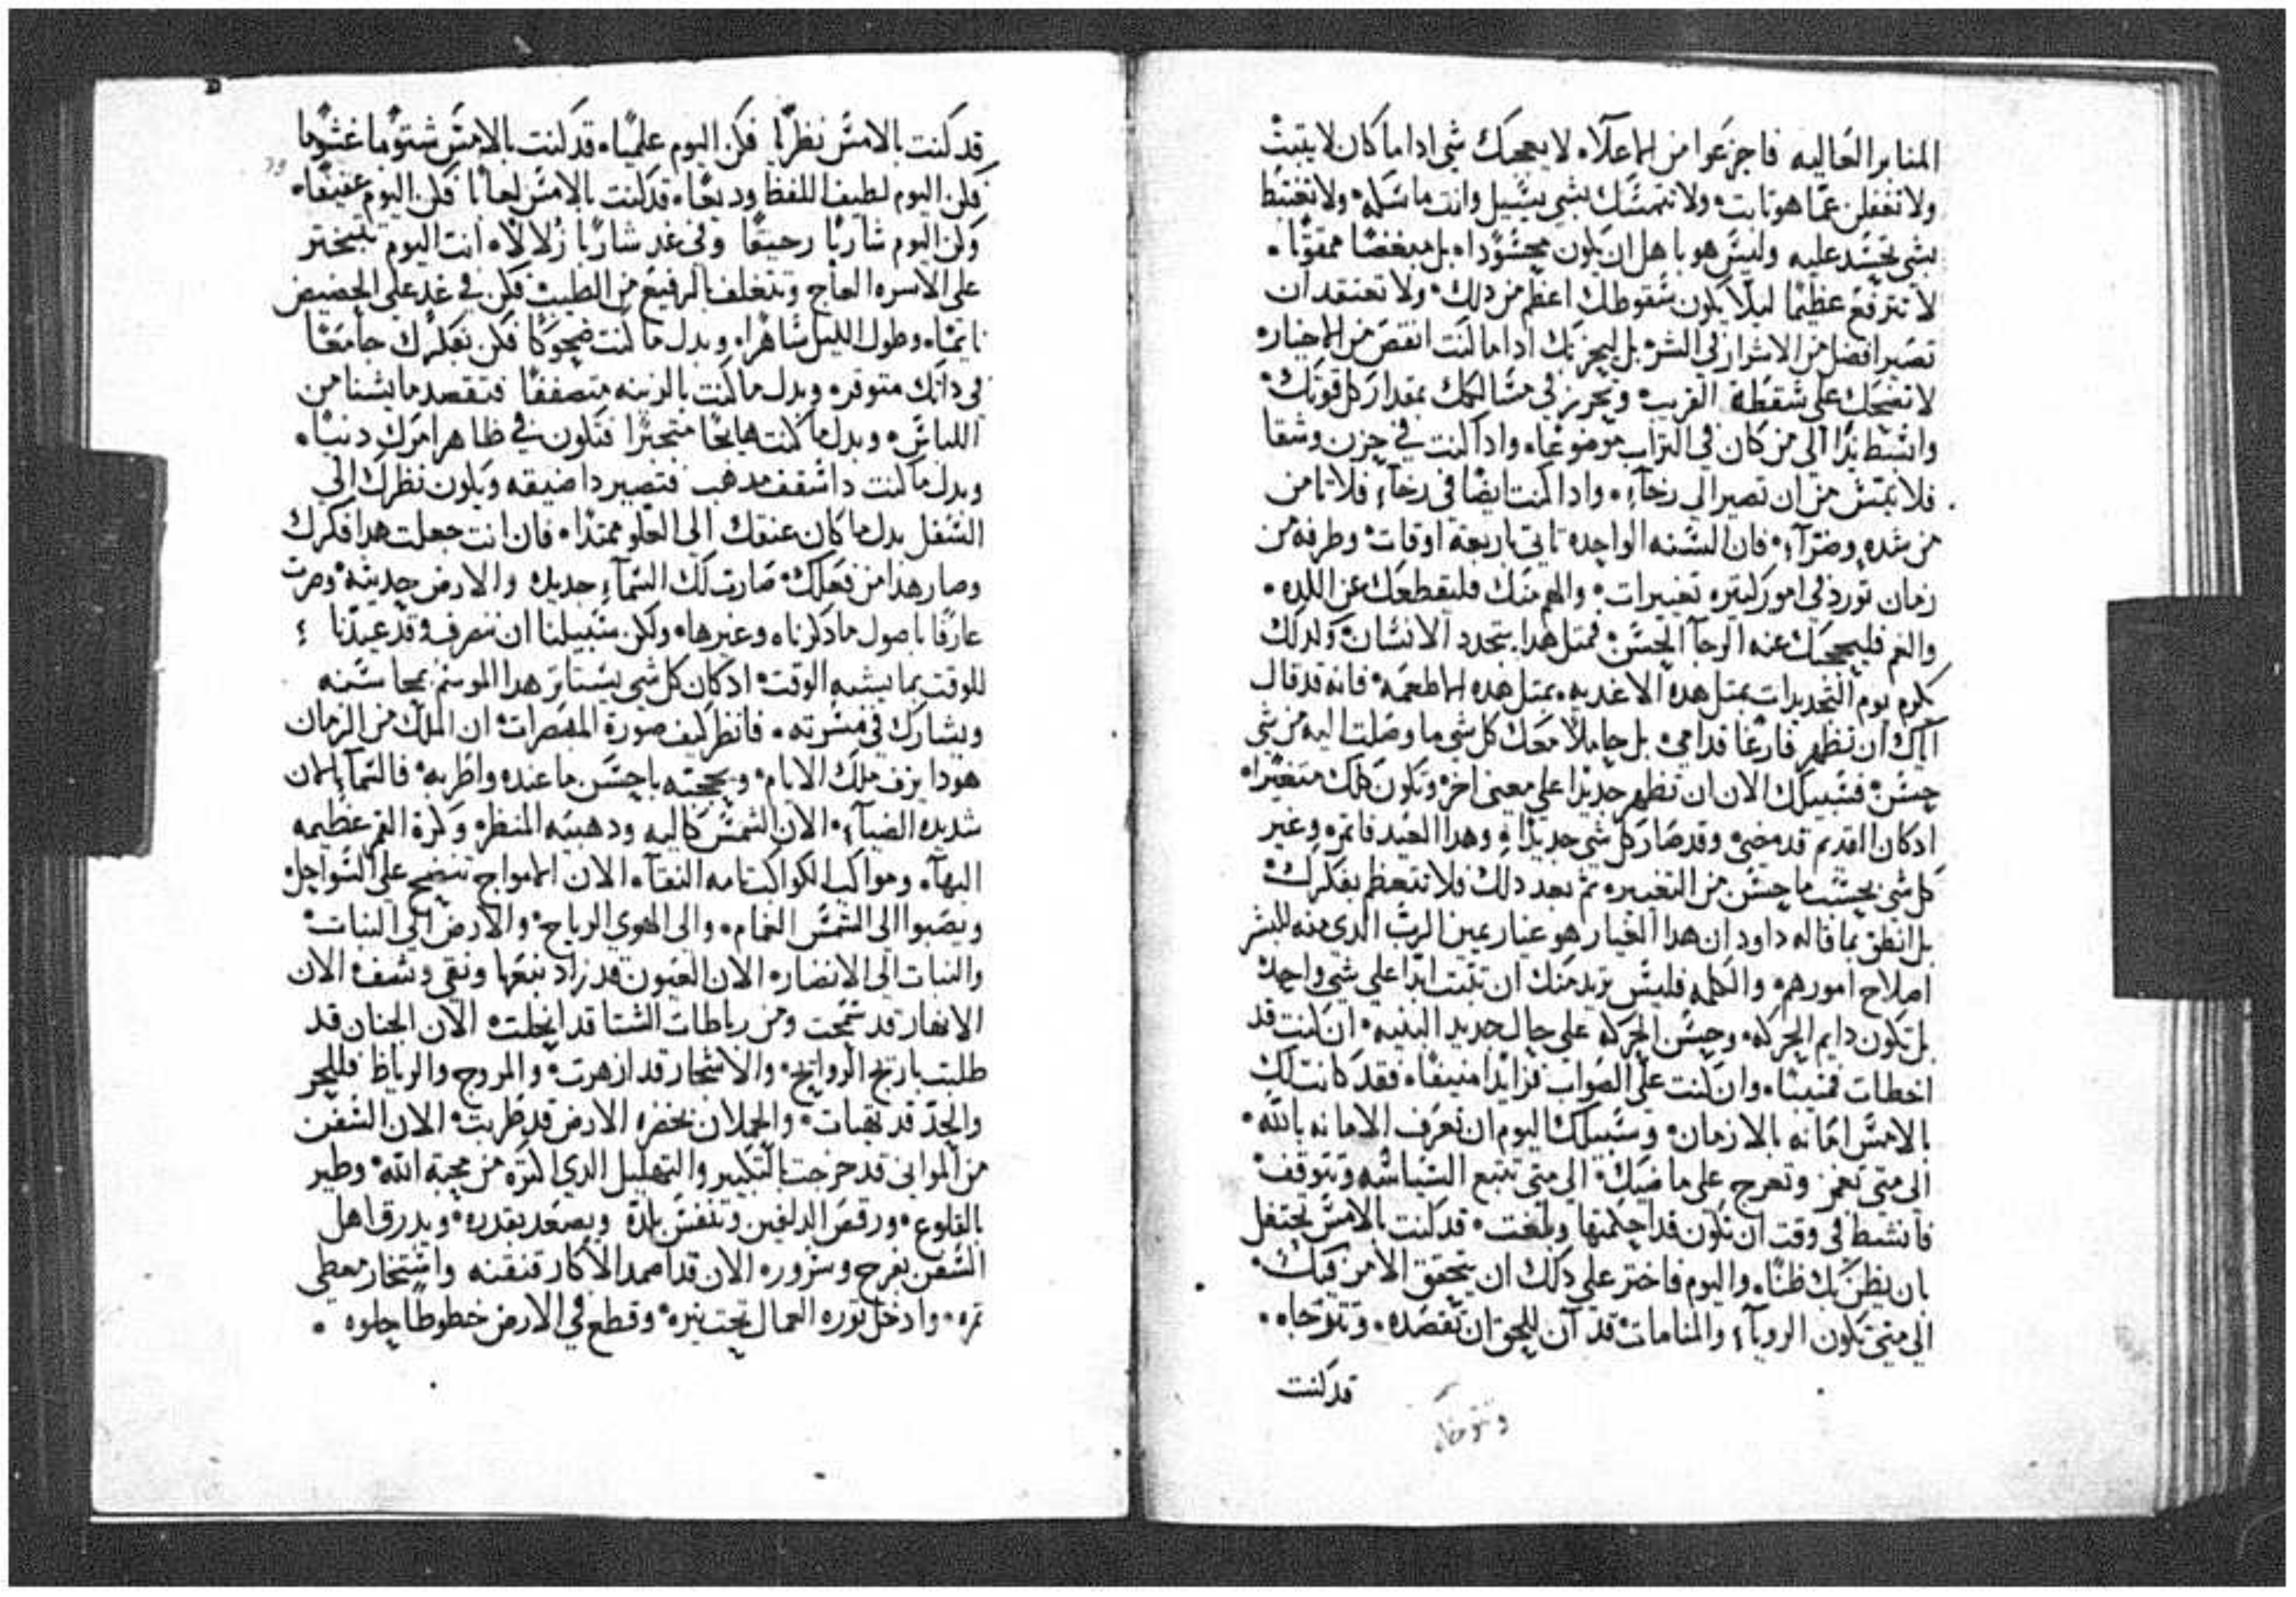 المنابر العاليه فاجزعوا من الاعلاه لا يعجبك شي اداما كان لا يتبث
ولا تغفلن عما هو تابت ولا تتمسك بشي يسيل وانت ماسكه ولا تغتبط
بشي تحسد عليه وليس هو باهل ان يكون محسودا بل مبغضا ممقوتا
لا تترفع عظيما ليلا يكون سقوطك اعظم من دلك ولا تعتقد ان
تصير افضل من الاشرار في الشر بل ليحزنك اداما كنت انقص من الاخيار
لا تضحك علي سقطة القريب وتحرز في مسالكك بمقدار كل قوتك
وابسط يدا الي من كان في التراب موضوعا وادا كنت في حزن وشقا
فلا تيس من ان تصير الي رخآء وادا كنت ايضا في رخآء فلا تامن
من شده وضرآء فان السنه الواحده تاتي باربعة اوقات وطرفة من
زمان تورد في امور كتيره تغييرات والهم منك فليقطعك عن اللده
والغم فليحجبك عنه الرجآ الحسن فمتل هدا يتجدد الانسان ولدلك
كرم يوم التجديرات بمتل هده الاغديه بمتل هده الاطعمه فانه قد قال
اياك ان تظهر فارغا قدامي بل حاملا معك كل شي ما وصلت اليه من شي
حسن فسبيلك الان ان تظهر جديدا علي معني اخر وتكون كلك متغيرا
ادكان القديم قد مضي وقد صار كل شي جديدا وهدا العيد فاتمره وغير
كل شي بحسب ما حسن من التغيير تم بعد دلك فلا تتعظم بفكرك
بل انطق بما قاله داود ان هدا الغيار هو غيار يمين الرب الدي منه للبشر
اصلاح امورهم والكلمه فليس تريد منك ان تتبت ابدا علي شي واحد
بل تكون دايم الحركه وحسن الحركه علي حال جديد البنيه ان كنت قد
اخطات فمنيبا وان كنت علي الصواب فزايدا منيفا فقد كانت لك
بالامس امانه بالازمان وسبيلك اليوم ان تعرف الامانه بالله
الي متي تغمز وتعرج علي ماضيك الي متي تتبع السياسه وتتوقف
فانشط في وقت ان تكون قد احكمتها وبلغت قد كنت بالامس تحتفل
بان يظن بك ظنا واليوم فاختر علي دلك ان يتحقق الامر فيك
الي متي تكون الرويآء والمنامات قد آن للحق ان تقصده وتتوخاه
قد كنت
وتتوخاه
قد كنت بالامس نظريا فكن اليوم علميا قد كنت بالامس شتوما غشوما
فكن اليوم لطيف اللفظ وديعا قد كنت بالامس لعابا فكن اليوم عفيفا
وكن اليوم شاربا رحيقا وفي غد شاربا زلالا انت اليوم تتبختر
علي الاسره العاج وتتغلف بالرفيع من الطيب فكن في غد علي الحضيض
نايما وطول الليل ساهرا وبدل ما كنت ضحوكا فكن بفكرك جامعا
في داتك متوقره وبدل ما كنت بالزينه متصففا فتقصد ما يشنا من
اللباس وبدل ما كنت هايجا متجبرا فتكون في ظاهر امرك دنيا
وبدل ما كنت داسقف مدهب فتصير داضيقه ويكون نظرك الي
السفل بدل ما كان عنقك الي العلو ممتدا فان انت جعلت هدا فكرك
وصار هدا من فعلك صارت لك السمآء جديده والارض جديثه وصرت
عارفا باصول ما دكرناه وغيرها ولكن سبيلنا ان ننصرف وقد عيدنا
للوقت بما يشبه الوقت ادكان كل شي يستاتر هدا الموسم بمحاسنه
ويشارك في مسرته فانظر كيف صورة المبصرات ان الملك من الزمان
هودا يزف ملك الايام ويحجبه باحسن ما عنده واطربه فالسمآ الان
شديده الضيآء الان الشمس عاليه ودهبيه المنظر وكرة القمر عظيمه
البهآء ومواكب الكواكب تامه النقآء الان الامواج تنضح علي السواحل
ويصبوا الي الشمس الغمام والي الهوي الرياح والارض الي النبات
والنبات الي الابصار الان العيون قد زاد نبعها ونقي وشف الان
الانهار قد سمحت ومن رباطات الشتا قد انحلت الان الجنان قد
طلبت باريج الروايح والاشجار قد ازهرت والمروج والرياظ فللجر
والجد قد تهيات والحملان بخضرة الارض قد طربت الان السفن
من المواني قد خرجت بالتكبير والتهليل الدي اكتره من محبة الله وطير
بالقلوع ورقص الدلفين وتنفس بلدة ويصعد بقدره ويدرق اهل
السفن بفرح وسروره الان قد اصمد الاكار قنقنه واستخار معطي
تمره وادخل توره العمال تحت نيره وقطع في الارض خطوطا حلوه